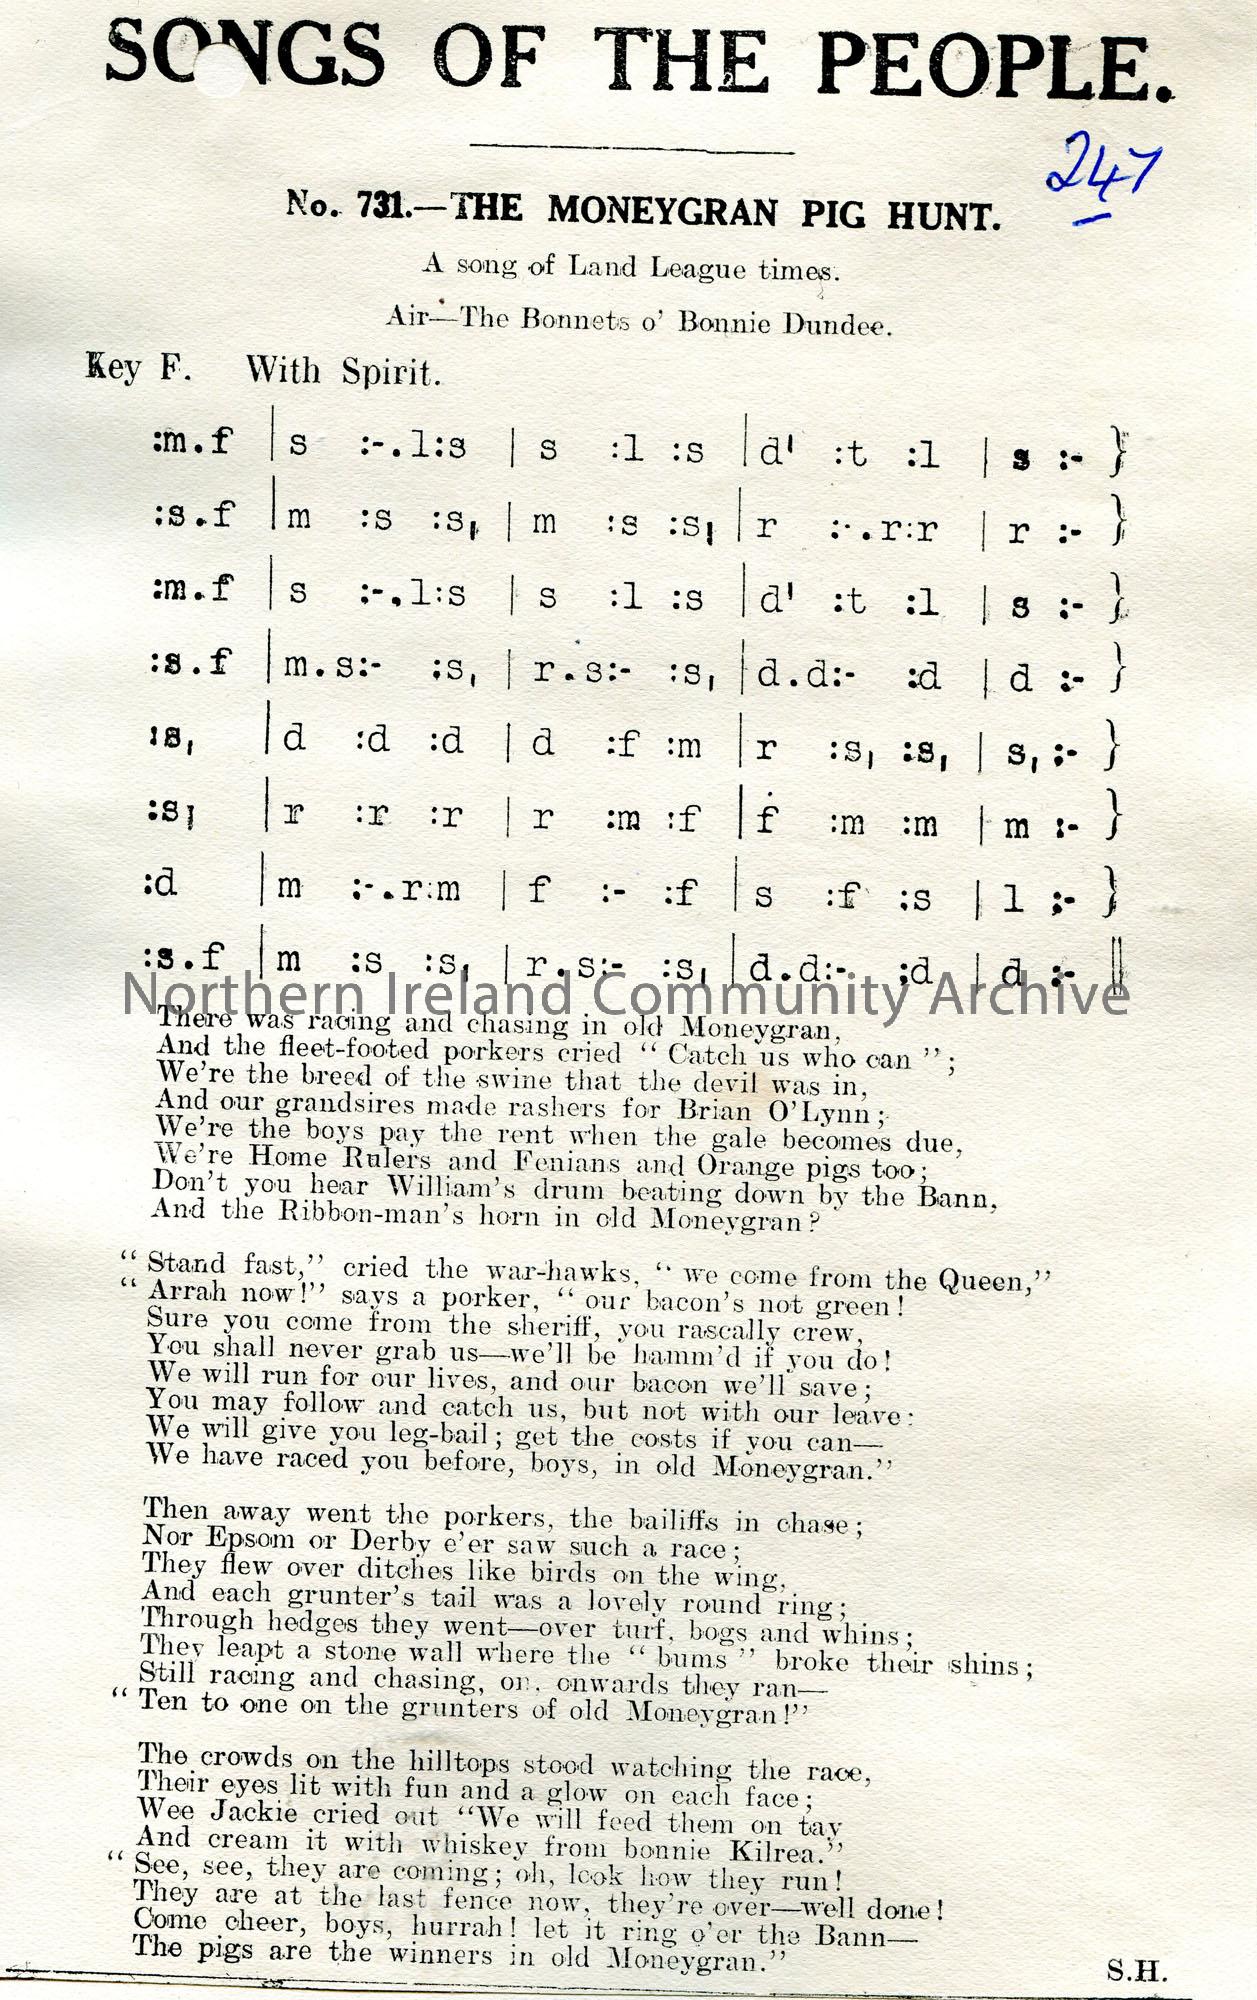 SONGS OF THE PEOPLE.
247
No. 731.—THE MONEYGRAN PIG HUNT.
A song of Land League times.
Air—The Bonnets o' Bonnie Dundee.
Key F. With Spirit.
:m.f | s :-.l:s | s :l :s | d' :t :l | s :- }
:s.f | m :s :s, | m :s :s, | r :-.r:r | r :- }
:m.f | s :-.l:s | s :l :s | d' :t :l | s :- }
:s.f | m.s:- :s, | r.s:- :s, | d.d:- :d | d :- }
:s, | d :d :d | d :f :m | r :s, :s, | s, :- }
:s, | r :r :r | r :m :f | f :m :m | m :- }
:d | m :-.r:m | f :- :f | s :f :s | l :- }
:s.f | m :s :s, | r.s:- :s, | d.d:- :d | d :- ||
Northern Ireland Community Archive
There was racing and chasing in old Moneygran,
And the fleet-footed porkers cried "Catch us who can";
We're the breed of the swine that the devil was in,
And our grandsires made rashers for Brian O'Lynn;
We're the boys pay the rent when the gale becomes due,
We're Home Rulers and Fenians and Orange pigs too;
Don't you hear William's drum beating down by the Bann,
And the Ribbon-man's horn in old Moneygran?
"Stand fast," cried the war-hawks, "we come from the Queen,"
"Arrah now!" says a porker, "our bacon's not green!
Sure you come from the sheriff, you rascally crew,
You shall never grab us—we'll be hamm'd if you do!
We will run for our lives, and our bacon we'll save;
You may follow and catch us, but not with our leave:
We will give you leg-bail; get the costs if you can—
We have raced you before, boys, in old Moneygran."
Then away went the porkers, the bailiffs in chase;
Nor Epsom or Derby e'er saw such a race;
They flew over ditches like birds on the wing,
And each grunter's tail was a lovely round ring;
Through hedges they went—over turf, bogs and whins;
They leapt a stone wall where the "bums" broke their shins;
Still racing and chasing, on, onwards they ran—
"Ten to one on the grunters of old Moneygran!"
The crowds on the hilltops stood watching the race,
Their eyes lit with fun and a glow on each face;
Wee Jackie cried out "We will feed them on tay
And cream it with whiskey from bonnie Kilrea."
"See, see, they are coming; oh, look how they run!
They are at the last fence now, they're over—well done!
Come cheer, boys, hurrah! let it ring o'er the Bann—
The pigs are the winners in old Moneygran."
S.H.